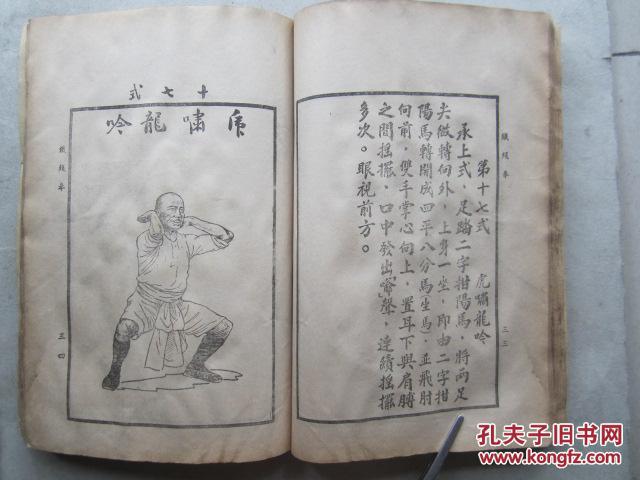 鐵綫拳
第十七式　虎嘯龍吟
承上式，足踏二字拑陽馬，將兩足
尖傲轉向外，上身一坐，即由二字拑
陽馬轉開成四平八分馬（坐馬）並飛肘
向前，雙手掌心向上，置耳下與肩膊
之間搖擺。口中發出（喻）聲，連續搖擺
多次。眼視前方。
三三
十七式
虎嘯龍吟
鐵綫拳
三四
孔夫子旧书网
www.kongfz.com